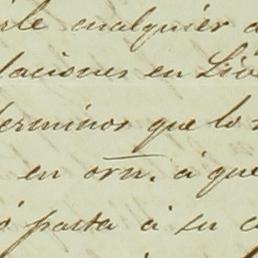 cualquier
laciones en Liv
terminos que lo
en orn. á que
pasta á su